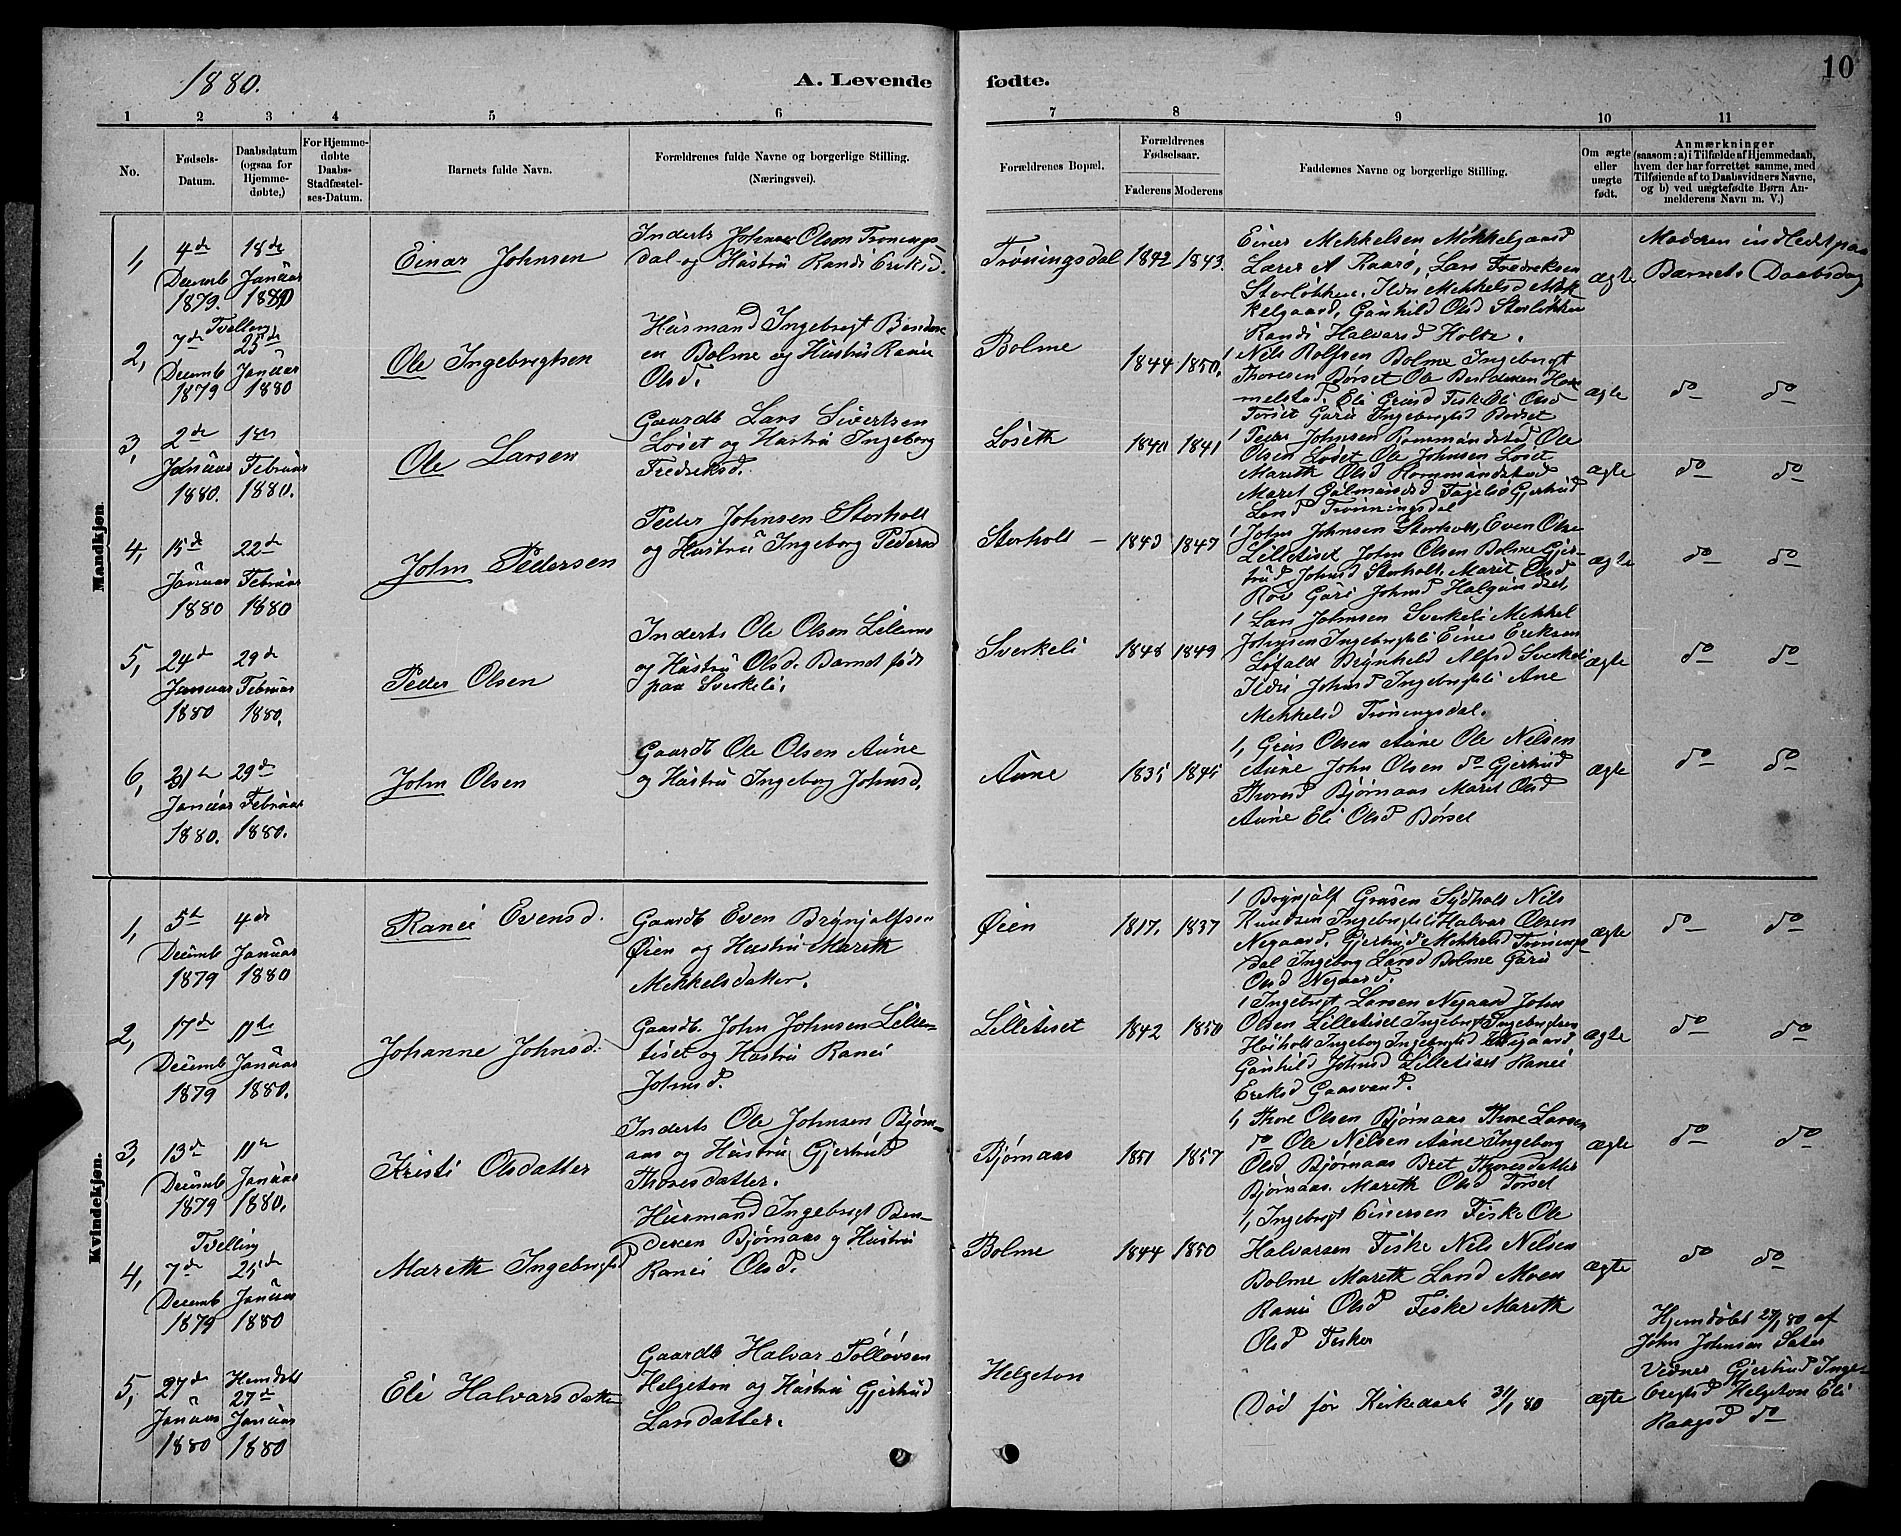 1880.
A. Levende
fødte.
10
1 2 3 4 5 6 7 8 9 10 11
No.
Fødsels-
Datum.
Daabsdatum
(ogsaa for
Hjemme-
døbte,)
For Hjemme-
døbte
Daabs-
Stadfæstel-
ses-Datum.
Barnets fulde Navn.
Forældrenes fulde Navne og borgerlige Stilling.
(Næringsvei).
Forældrenes Bopæl.
Forældrenes
Fødselsaar.
Faderens Moderens
Faddernes Navne og borgerlige Stilling.
Om ægte
eller
uægte
født.
Anmærkninger
(saasom: a) i Tilfælde af Hjemmedaab,
hvem der har forrettet samme, med
Tilføiende af to Daabsvidners Navne,
og b) ved uægtefødte Børn An-
melderens Navn m. V.)
Mandkjøn.
1,
4de
Decemb
1879.
18de
Januar
1880
Einar Johnsen
Inderts Johnsen Olsen Trønings-
dal og Hustru Randi Eriksd.
Trøningsdal
1842 1843.
Einer Mekkelsen Møkkelgaard
Lærer A Kaarø, Lars Fredriksen
Storløkken, Ildri Mekkelsd Møk-
kelgaard, Gunhild Olsd Storløkken
Randi Halvarsd Holte.
ægte
Moderen indledt paa
Barnets Daabsdag
2,
Tvelling
7de
Decemb
1879
25de
Januar
1880
Ole Ingebrigtsen
Husmand Ingebrigt Bendix-
en Bolme og Hustru Ranie
Olsd.
Bolme
1844 1850.
Nils Rolfsen Bolme Ingebrigt
Thoresen Børset Ole Bendixen Ham-
melstad, Eli Grusd Fiske Eli Olsd
Torset Guru Ingebrigtsd Børset
ægte
do do
3,
2de
Januar
1880.
1ste
Februar
1880.
Ole Larsen
Gaardb Lars Sivertsen
Løset og Hustru Ingeborg
Fredriksd.
Løseth
1840 1841
Peder Johnsen Rommundstad Ole
Olsen Løset Ole Johnsen Løset
Mareth Olsd Rommundstad
Maret Gulmundsd Fagelsø Gjertrud
Larsd Trønningsdal
ægte
do do
4,
15de
Januar
1880
22de
Februar
1880
John Pedersen
Peder Johnsen Storholt
og Hustru Ingeborg Pedersd
Storholt
1843 1847
John Johnsen Storholt, Even Olse
Lilletiset, John Olsen Bolme Gjer-
trud Johnsd Storholt, Marit Olsd
Roe Guri Johnsd Halgundset,
ægte
do do
5,
24de
Januar
1880
29de
Februar
1880.
Peder Olsen
Inderts Ole Olsen Lillemo
og Hustru Olsd. Barnet født
paa Sverkeli,
Sverkeli
1848 1849
Lars Johnsen Sverkeli Mekkel
Johnsen Ingebrigtsli Einer Eriksen
Løfald Brynhild Alfsd Sverkeli
Ildri Johnsd Ingebrigtsli Ane
Mekkelsd Trøningsdal.
ægte
do do
6,
31te
Januar
1880.
29de
Februar
1880.
John Olsen
Gaardb Ole Olsen Aune
og Hustru Ingeborg Johnsd,
Aune
1835 1845
1, Grus Olsen Aune Ole Nilsen
Aune John Olsen do Gjertrud
Thoresd Bjørnaas Marit Olsd
Aune Eli Olsd Børset
ægte
do do
Kvindekjøn.
1,
5te
Decemb
1879
4de
Januar
1880
Ranei Evensd.
Gaardb Even Brynjolfsen
Øien og Hustru Mareth
Mekkelsdatter.
Øien
1817. 1837
Brynjulf Grusen Sydholt Nils
Knudsen Ingebrigtsli Halvar Olsen
Negaard, Gjertrud Mekkelsd Trønings-
dal Ingeborg Larsd Bolme Guru
Olsd Negaard.
ægte
do do
2,
17de
Decemb
1879
11te
Januar
1880.
Johanne Johnsd.
Gaardb. John Johnsen Lille-
tiset og Hustru Ranei
Johnsd.
Lilletiset
1842 1850
Ingebrigt Larsen Negaard John
Olsen Lilletiset Ingebrigt Ingebrigtsen
Høiholt Ingeborg Ingebrigtsd Negaard
Gunhild Johnsd Lilletiset Ranei
Eriksd Gaasvand.
ægte
do do
3,
13de
Decemb
1879
11te
Januar
1880.
Kristi Olsdatter
Inderts Ole Johnsen Bjørn-
aas og Hustru Gjertrud
Thoresdatter.
Bjørnaas
1851 1857
1, Thore Olsen Bjørnaas Thore Larsen
do Ole Nilsen Aune Ingeborg
Olsd Bjørnaas Bret Thoresdatter
Bjørnaas. Mareth Olsd Torset
ægte
do do
4,
Tvelling
7de
Decemb
1879
25de
Januar
1880
Mareth Ingebrigtsd
Husmand Ingebrigt Ben-
dexen Bjørnaas og Hustru
Ranei Olsd.
Bolme
1844 1850
1, Ingebrigt Einersen Fiske Ole
Halvarsen Fiske Nils Nilsen
Bolme Mareth Larsd Moen
Ranei Olsd Fiske Mareth
Olsd Fiske
ægte
do do
5,
27de
Januar
1880
Hemdøbt
27de
Januar
1880
Eli Halvarsdatter
Gaardb Halvar Tølløvsen
Helgeton og Hustru Gjertrud
Larsdatter.
Helgeton
Død før Kirkedaab 31/1 80
ægte
Hjemdøbt 27/1 80 af
John Johnsen Sæter
Vidner Gjertrud Inge-
brigtsd Helgeton Eli
Haagsd do